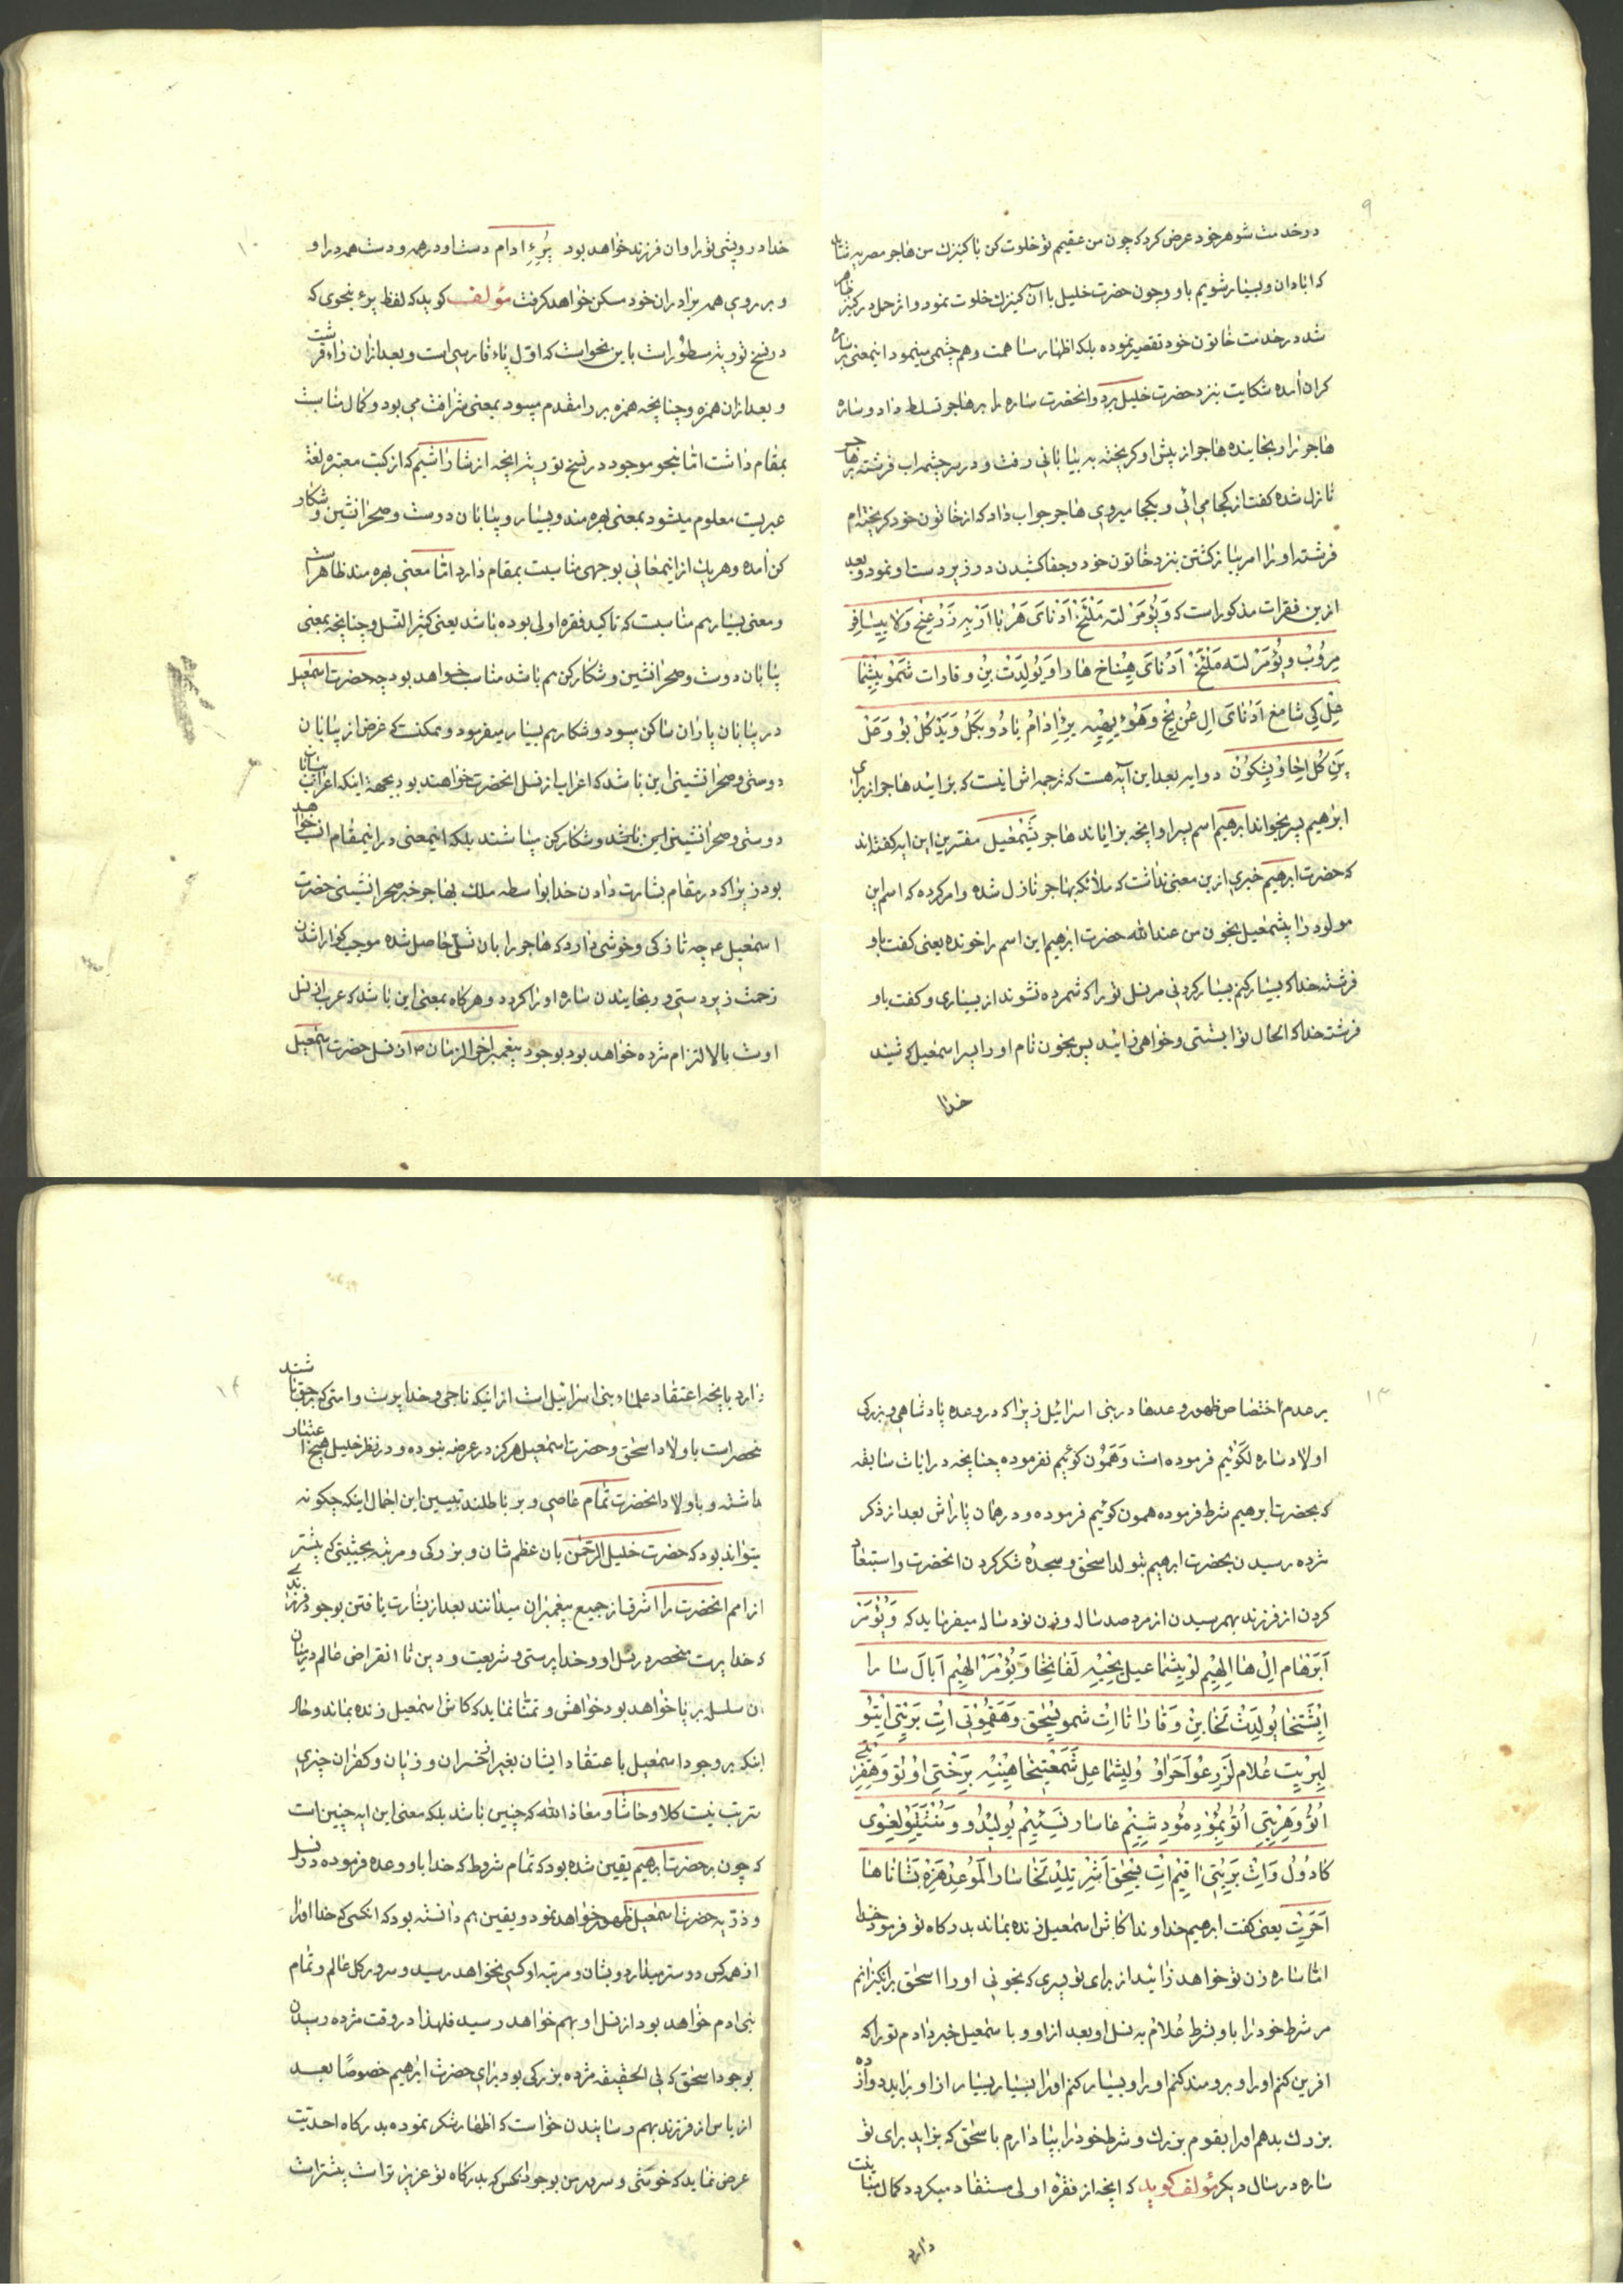 ۹
در خدمت شوهر خود عرض کرد که چون من عقیم تو خلوت کن با کنیزك من هاجر مصریه شاید
که ابادان و بسیار شویم باو و چون حضرت خلیل با آن کنیزك خلوت نمود و اثر حمل در کنیز ظاهر
شد در خدمت خاتون خود تقصیر نموده بلکه اظهار مساهمت و هم چشمی مینمود اینمعنی بر ساره
کران آمده شکایت بنزد حضرت خلیل برد و انحضرت ساره را بر هاجر تسلط داد و ساره
هاجر را رنجانیده هاجر از پیش او کریخته به بیابانی رفت و در سر چشمه اب فرشته بر هاجر
نازل شده کفت از کجا می ائی و بکجا میروی هاجر جواب داد که از خاتون خود کریخته ام
فرشته او را امر بباز کشتن بنزد خاتون خود و جفا کشیدن در زیر دست او نمود و بعد
ازین فقرات مذکور است که وَیُؤمَرْ لته مَلْئَخْ اَدُنایَ هَرْبا اَرْبِه زَرْعِیْخ وَلا ییسّافِر
مِرُوْبْ وَیُؤمَرْ لته مَلْئَخْ اَدُنایَ هِیناخ هارا وَیُولِدَتْ بِنْ و قارات شَمَوُ ییشْما
عِلْ کِی شامَع اَدُنایَ اِل عُن یِخ وَهُوُء یِهْیِه پِرْءِ ادامْ یادُو بَکُلْ وَیَدْ کُلْ بُوْ وَعَلْ
پِنَی کُلْ اِخاوْ یِشْکُونْ در ایه بعد این آیه هست که ترجمه اش اینست که بزائید هاجر از برای
ابرهیم پسر بخواند ابرهیم اسم پسر او انچه بزایاند هاجر یَشْمَعیل مفسرین این ایه کفته اند
که حضرت ابرهیم خبری ازین معنی نداشت که ملائکه بهاجر نازل شده و امر کرده که اسم این
مولود را یشمعیل بخون من عندالله حضرت ابرهیم این اسم را خونده یعنی کفت باو
فرشته خدا که بسیار کنم بسیار کردنی مر نسل تو را که شمرده نشوند از بسیاری و کفت باو
فرشته خدا که الحال تو ابستنی و خواهی زائید پس بخون نام او را پسر اسمعیل که شنید
خدا
۱۰
خدا درویشی تو را و ان فرزند خواهد بود پِرِءِ ادام دست او در همه و دست همه در او
و بر روی همه برادران خود مسکن خواهد کرفت مؤلف کوید که لفظ پرء بنحوی که
در نسخ توریة مسطور است باین نحو است که اوّل پاء فارسی است و بعد ازان راء قرشت
و بعد ازان همزه و چنانچه همزه بر را مقدم میبود بمعنی شرافت می بود و کمال مناسبت
بمقام داشت اما بنحو موجود در نسخ توریة انچه از شاراشیم که از کتب معتبره لغة
عبریت معلوم میشود بمعنی بهره مند و بسیار و بیابان دوست و صحرا نشین و شکار
کن آمده و هریك از اینمعانی بوجهی مناسبت بمقام دارد امّا معنی بهره مند ظاهر است
و معنی بسیار هم مناسبت که تاکید فقره اولی بوده باشد یعنی کثیر النسل و چنانچه بمعنی
بیابان دوست و صحرا نشین و شکار کن هم باشد مناسب خواهد بود چه حضرت اسمعیل
در بیابان پاران ساکن میبود و شکار هم بسیار میفرمود و ممکنست که غرض از بیابان
دوستی و صحرا نشینی این باشد که اعراب از نسل انحضرت خواهند بود بجهة اینکه اعراب بیابان
دوستی و صحرا نشینی این باشد و شکار کن میباشند بلکه اینمعنی در اینمقام انسب خواهد
بود زیرا که در مقام بشارت دادن خدا بواسطه ملك بهاجر خبر صحرا نشینی حضرت
اسمعیل ع چه تازکی و خوشی دارد که هاجر را بان تسلّی حاصل شده موجب کوارا شدن
زحمت زیر دستی و رنجانیدن ساره او را کردد و هر کاه بمعنی این باشد که عرب از نسل
اوست بالالتزام مژده خواهد بود بوجود پیغمبر اخر الزمان ص از نسل حضرت اسمعیل
۱۳
بر عدم اختصاص ظهور وعدها در بنی اسرائیل زیرا که در وعده پادشاهی و بزرکی
اولاد ساره لَکَوئیم فرموده است وَهَمُون کوئیم نفرموده چنانچه در ایات سابقه
که بحضرت ابرهیم شرط فرموده همون کوئیم فرموده و در همان پاراش بعد از ذکر
مژده رسیدن بحضرت ابرهیم بتولد اسحق و سجدۀ شکر کردن انحضرت و استبعاد
کردن از فرزند بهمرسیدن از مرد صد ساله و زن نود ساله میفرماید که وَیُؤمَرْ
اَبْرَهام اِلْ ها اِلهیِم لُوْ ییِشْماعیل یِحْیِه لَفانِخا وَیُؤمَرْ الهِیم اَبال سارا
اِیْشْتِخا یُولِدِتْ لَخا بِنْ وَقاراثا اِتْ شموییِصْحقْ وَهَقِمُوْتی اِت بَریتی ایتُو
لِبْریْت عُلام لَزَرِعُو اَحَراوْ وُلِیشْماعِل شَمَعْتیِخا هِیْنِیْه بِرَخْتی اوُتوُ وَهِفْرِیتی
اُتُوُ وَهِرْبِتِی اُتُوُ بِمُؤد مُؤد شِنِیْم عاسار نَسَیئِیْم یُولِیْدُو وَ نْتَتَیْو لِغُوی
کادُوُل وَاِتْ بَریتی اقیم اِتْ ییصْحقْ اَشِرْ تِلِدْ لَخا سارا لَمَوُعِدْ هَزِه بَشانا ها
اَحَرِت یعنی کفت ابرهیم خداوندا کاش اسمعیل زنده بماند بدرکاه تو فرمود خدا
امّا ساره زن تو خواهد زائید از برای تو پسری که بخونی او را اسحق برانکیزانم
مر شرط خود را باو بشرط عُلام به نسل او بعد از او و باسمعیل خبر دادم تو را که
افرین کنم او را و برومند کنم او را و بسیار کنم او را بسیار بسیار از او بزاید دوازده
بزرك بدهم او را بقوم بزرك و شرط خود را بپا دارم باسحق که بزاید برای تو
ساره در سال دیکر مؤلف کوید که انچه از فقره اولی مستفاد میکردد کمال مباینت
دارد
۱۴
دارد بانچه اعتقاد علماء بنی اسرائیل است از اینکه ناجی و خدا پرست و امتی که بر حق باشند
منحصر است باولاد اسحق و حضرت اسمعیل هرکز در عرضه نبوده و در نظر خلیل هیچ اعتبار
نداشته و باولاد انحضرت تمام عاصی و بر باطلند تبیین این اجمال اینکه چکونه
میتواند بود که حضرت خلیل الرّحمن بان عظم شان و بزرکی و مرتبه بحیثیتی که بیشتر
از امم انحضرت را اشرف از جمیع پیغمبران میدانند بعد از بشارت یافتن بوجود فرزندی
که خدا پرست منحصر در نسل او و خدا پرستی و شریعت و دین تا انقراض عالم در میان
ان سلسله بر پا خواهد بود خواهش و تمنّا نماید که کاش اسمعیل زنده بماند و حال
اینکه بر وجود اسمعیل باعتقاد ایشان بغیر از خسران و زیان و کفران چیزی
مترتب نیست کلا و حاشا و معاذ الله که چنین باشد بلکه معنی این ایه چنین است
که چون بر حضرت ابرهیم یقین شده بود که تمام شروط که خدا باو وعده فرموده در نسل
و ذرّیه حضرت اسمعیل ظهور خواهد نمود و یقین هم دانسته بود که انکسی که خدا او را
از همه کس دوستر میدارد و بشان و مرتبه او کسی نخواهد رسید و سرور کل عالم و تمام
بنی ادم خواهد بود از نسل او بهم خواهد رسید فلهذا در وقت مژده رسیدن
بوجود اسحق که فی الحقیقه مژده بزرکی بود برای حضرت ابرهیم خصوصًا بعد
از یاس از فرزند بهم رسانیدن خواست که اظهار شکر نموده بدرکاه احدیت
عرض نماید که خوشی و سرور من بوجود انکس که بدرکاه تو عزیز تر است بیشتر است